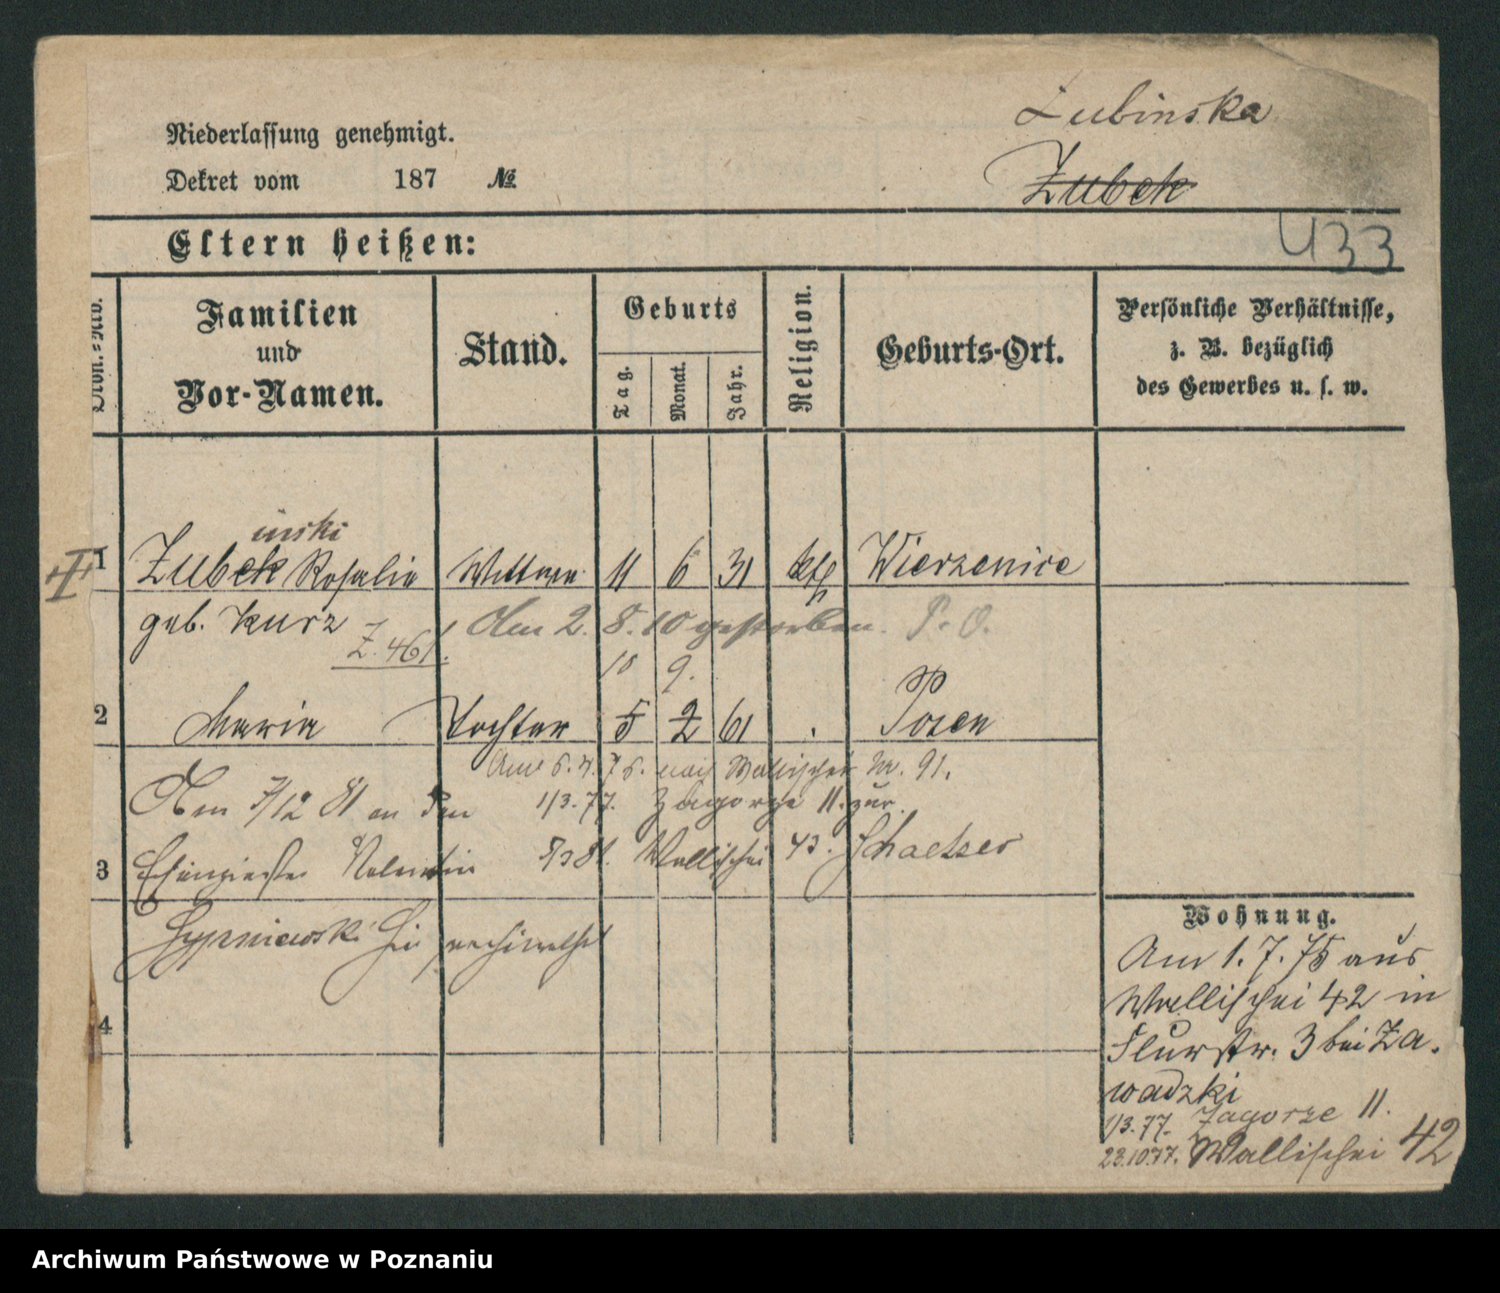 Zubinska
Niederlassung genehmigt.
Dekret vom 187 №
Zubek
433
Eltern heißen:
Familien
und
Vor-Namen.
Stand.
Geburts
Tag.
Monat.
Jahr.
Religion.
Geburts-Ort.
Persönliche Verhältnisse,
z. B. bezüglich
des Gewerbes u. s. w.
inski
1 Zubek Rosalie Wittwe 11 6 31 kth Wierzenice
geb. Kurz Am 2. 8. 10 gestorben. P. O.
Z. 461.
10 9.
2 Maria Tochter 5 2 61 Posen
Am 5. 7. 75. nach Wallischei Nr. 91.
Am 7/12 81 an den 1/3. 77. Zagorze 11. zur.
3 Valentin Wallischei 43. Schaetzer
Sypniewski verheirathet
4
Wohnung.
Am 1. 7. 75 aus
Wallischei 42 in
Flurstr. 3 bei Za.
wadzki
1/3. 77. Zagorze 11.
23.10.77. Wallischei 42
Archiwum Państwowe w Poznaniu